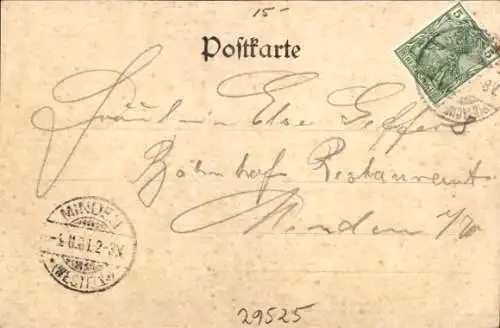 15-
Postkarte
5 5
Fräulein Else Geffers
Bahnhof Restaurant
Minden i/W
MINDEN
(WESTF.)
29525